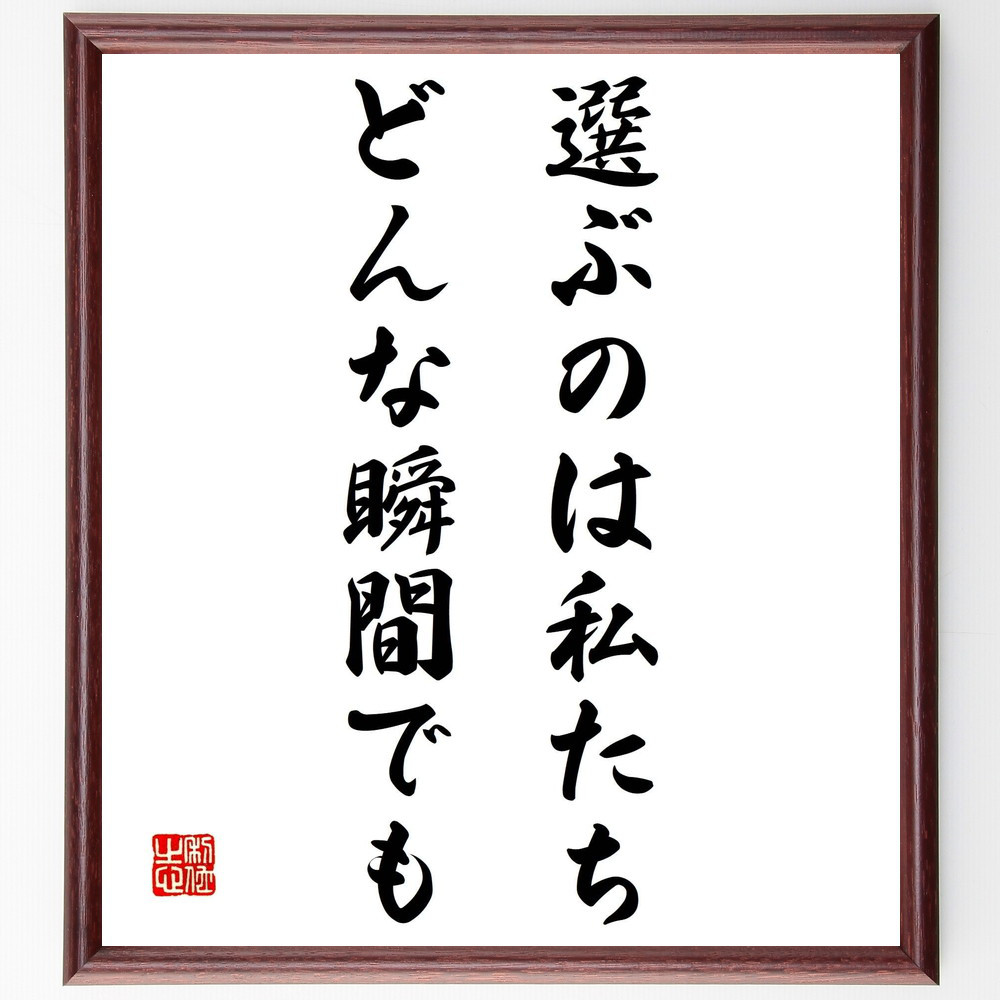 選ぶのは私たち
どんな瞬間でも